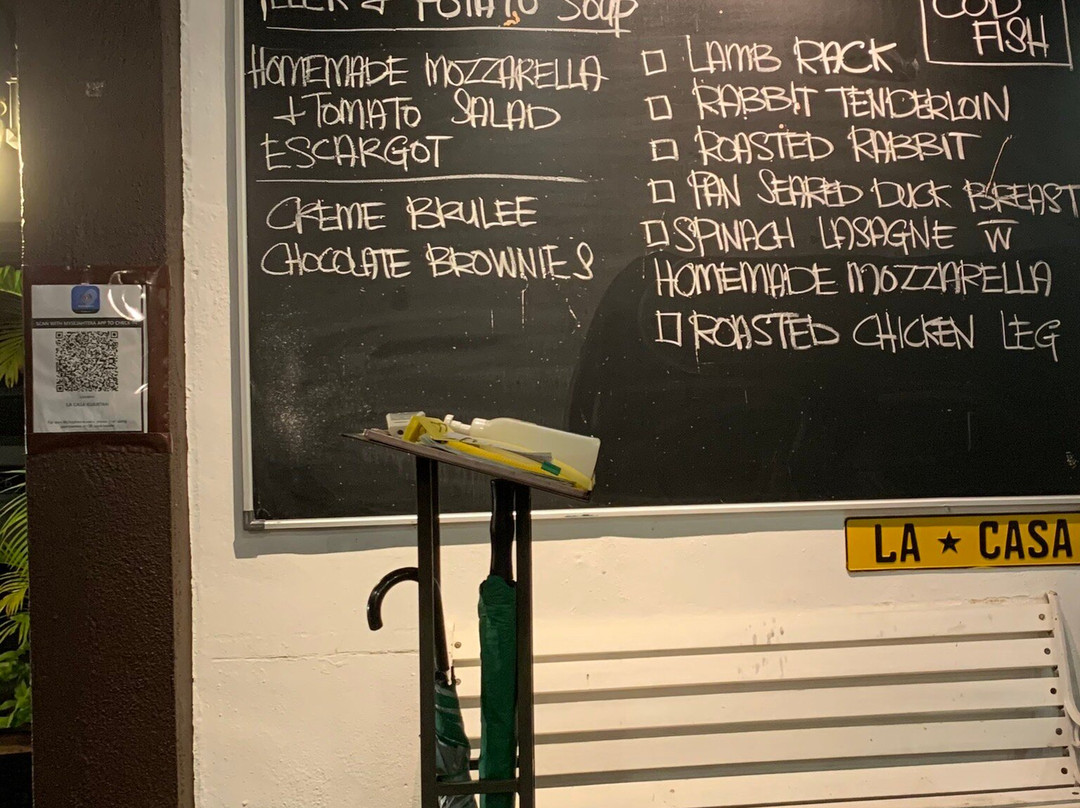 & POTATO SOUP
HOMEMADE MOZZARELLA
+ TOMATO SALAD
ESCARGOT
CREME BRULEE
CHOCOLATE BROWNIES
COD
FISH
LAMB RACK
RABBIT TENDERLOIN
ROASTED RABBIT
PAN SEARED DUCK BREAST
SPINACH LASAGNE W
HOMEMADE MOZZARELLA
ROASTED CHICKEN LEG
SCAN WITH MYSEJAHTERA APP TO CHECK-IN
LA ★ CASA